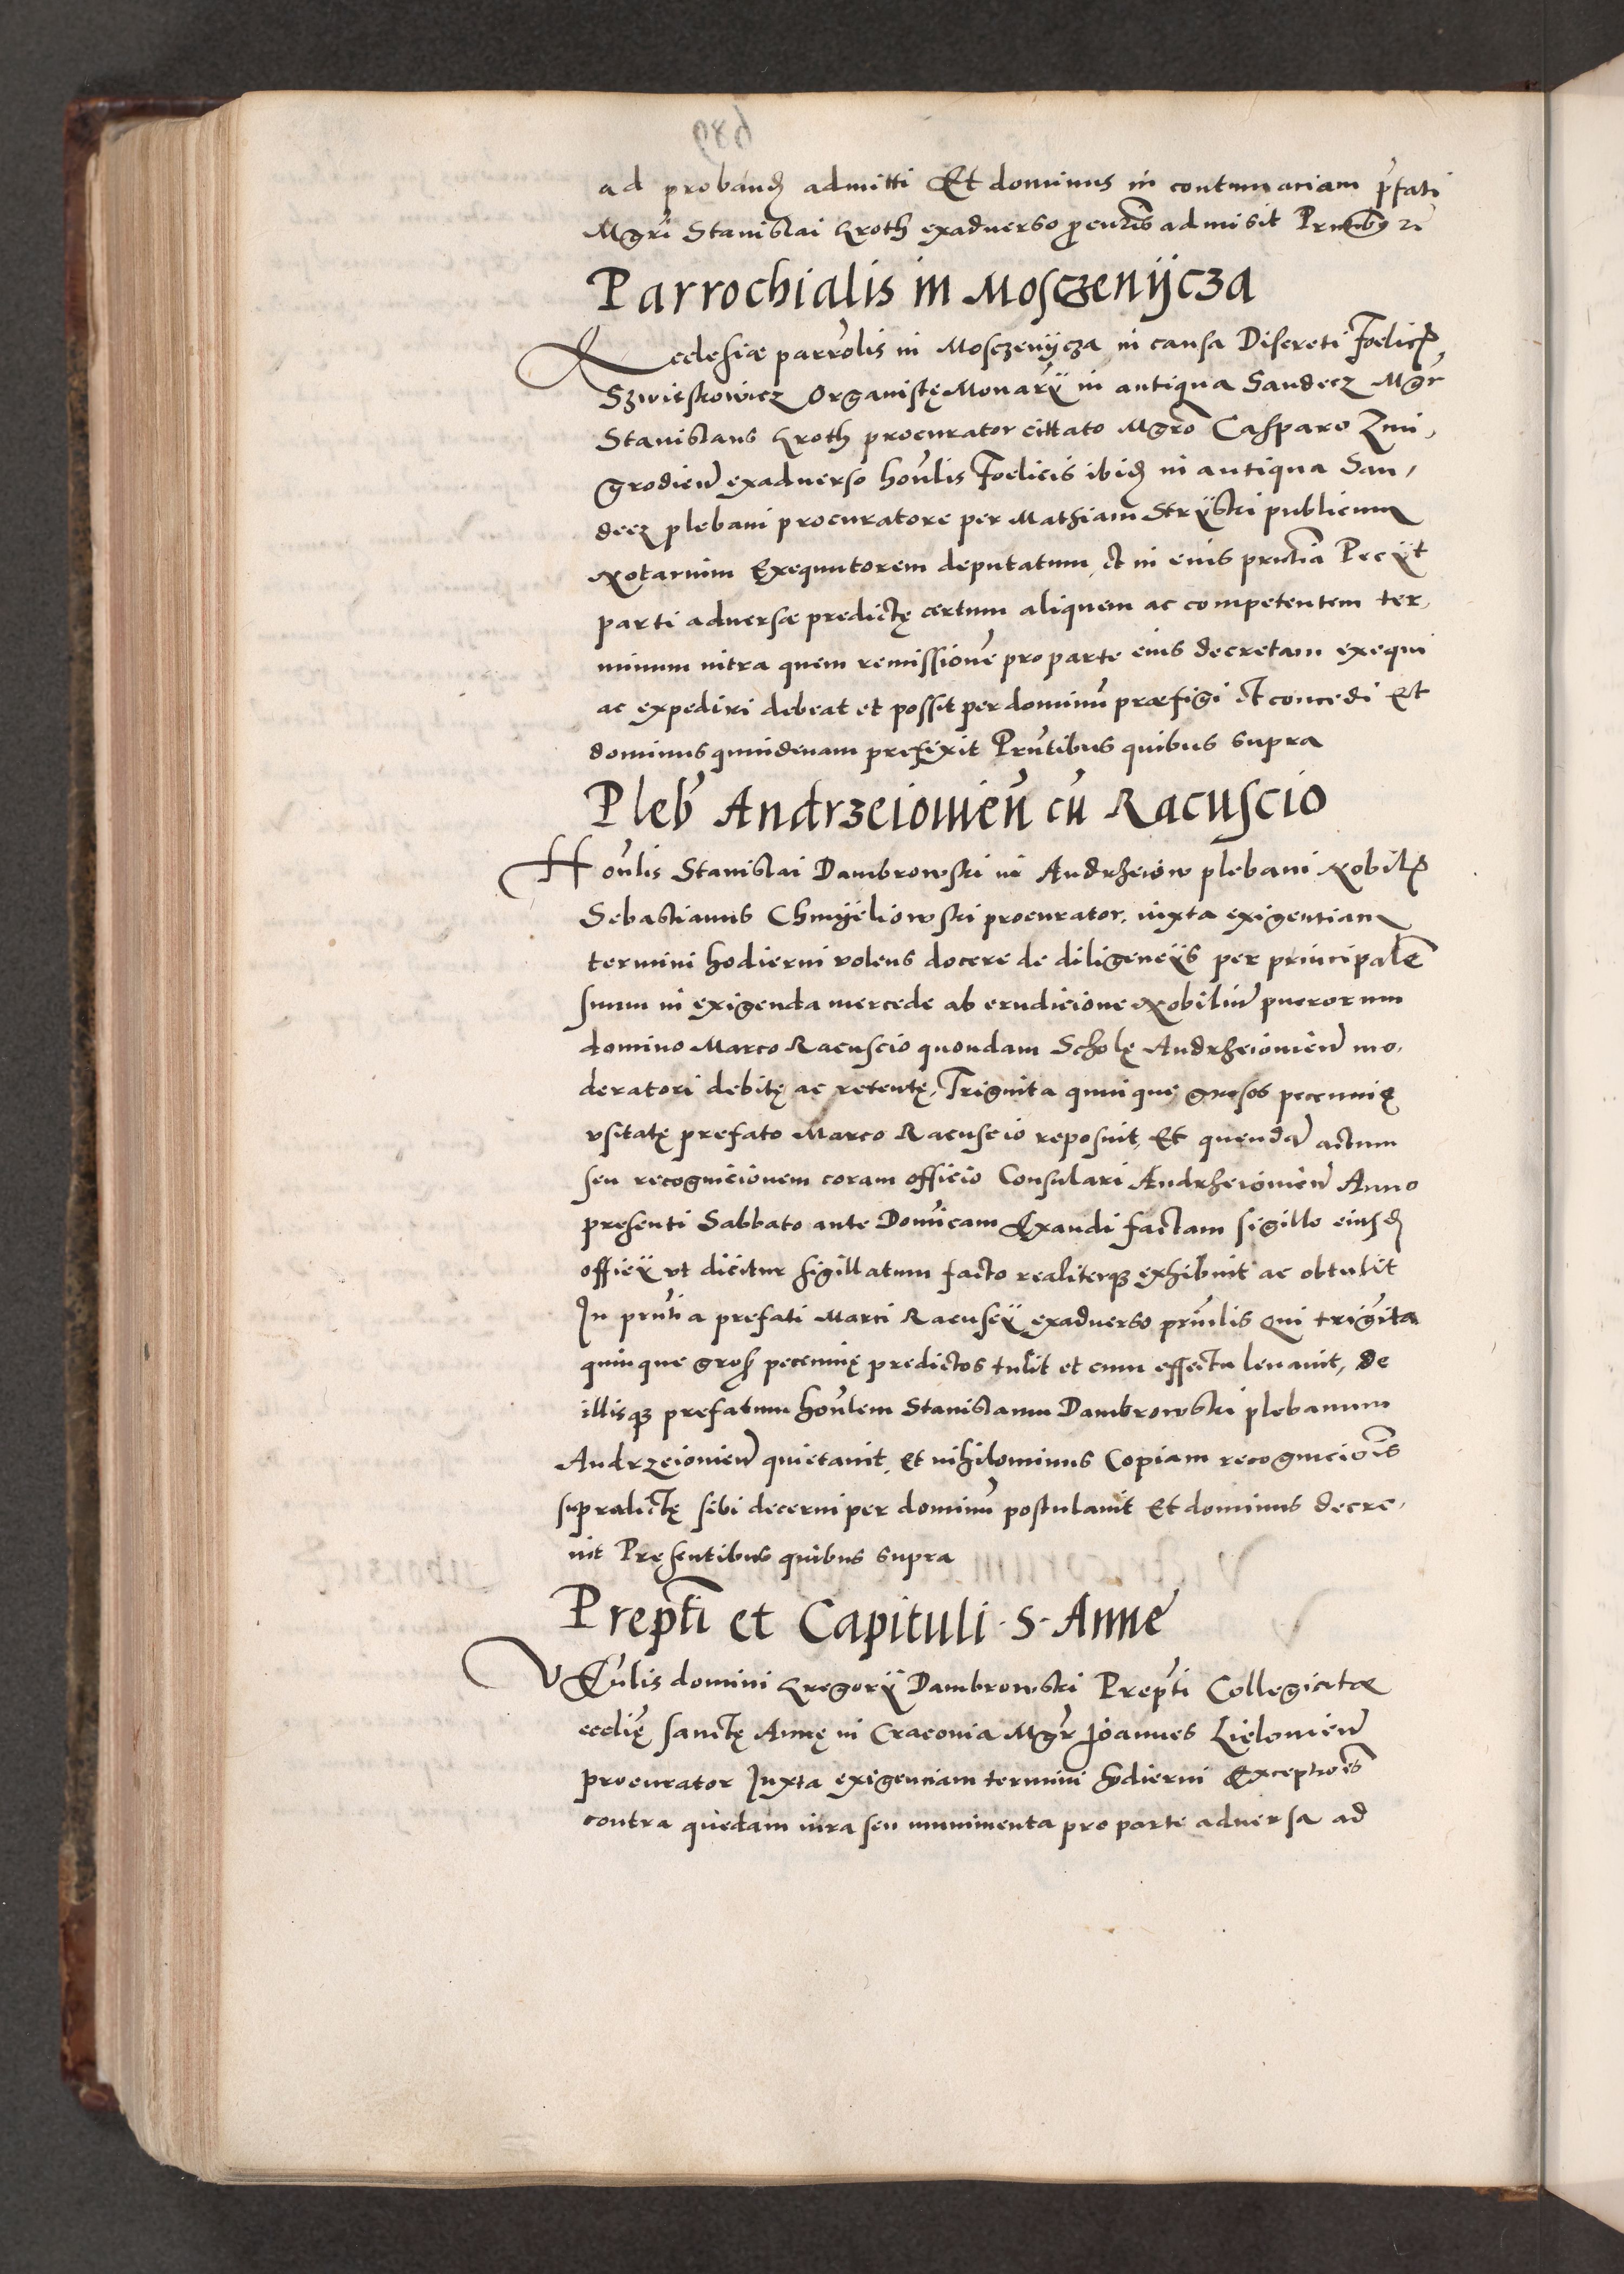 ad proband admitti Et dominus in contumaciam pfati
Mgri Stanislai Kroth exadverso procuris admisit Prntibus
Parrochialis in Mosczenijcza
Ecclesiæ parrolis in Mosczenijcza in causa Discreti Foelicis
Organistę in antiqua Sandecz Mgr
Stanislaus Kroth procurator cittato Mgro Casparo Zmi,
grodien exadverso honlis Foelicis ibid in antiqua San,
decz plebani procuratore per Mathiam Strijski publicum
Notarium Exequutorem deputatum, et in eius prntia Pecijt
parti adversæ predictę certum aliquem ac competentem ter,
minum intra quem remissione pro parte eius decretam exequi
ac expediri debeat et possit per dominu præfigi et concedi Et
dominus quindenam prefixit Prntibus quibus supra
Pleb Andrzeiowien cu Racuscio
Honlis Stanislai Dambrowski in Andrheiow plebani Nobilis
Sebastianus Chmijeliowski procurator, iuxta exigentiam
termini hodierni volens docere de diligencijs per principale
suum in exigenda mercede ab erudicione Nobiliu puerorum
domino Marco Racuscio quondam Scholę Andrheiowien mo,
deratori debitę ac retentę, Triginta quinque grosos pecunię
usitatę prefato Marco Racuscio reposuit, Et quenda actum
seu recognicionem coram officio Consulari Andrheiowien Anno
presenti Sabbato ante Domicam Exaudi factam sigillo eiusd
officij ut dicitur sigillatum facto realiterque exhibuit ac obtulit
In prntia prefati Marci Racuscij exadverso prinlis Qui triginta
quinque gros pecunię predictos tulit et cum effectu levavit, de
illisque prefatum honlem Stanislaum Dambrowski plebanum
Andrzeiowien quietavit, et nihilominus Copiam recognicionis
supradictę sibi decerni per dominu postulavit Et dominus decre,
vit Pręsentibus quibus supra
Prepti et Capituli S. Anne
Venlis domini Gregorij Dambrowski Prepti Collegiatæ
ecclię sanctę Annę in Cracovia Mgr Joannes Lielowien
procurator Juxta exigenciam termini hodierni Exceptiones
contra quedam iura seu munimenta pro parte adversa ad